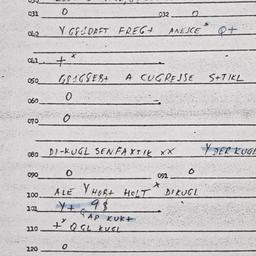 031 0 032 0
040 Y GEJDAFT FREGT ANEJCE * Q+
041 +*
050 GEJGSERT A CUGREJSSE S+TIKL
060 0
070 0
080 DI-KUGL SENFAKTIK xx Y DER KUGL
090 0 091 0
100 ALE Y HOBT HOLT * DIKUGL
101 Y+ 9$
GAP KUKT
110 +* Q GL KUGL
120 0